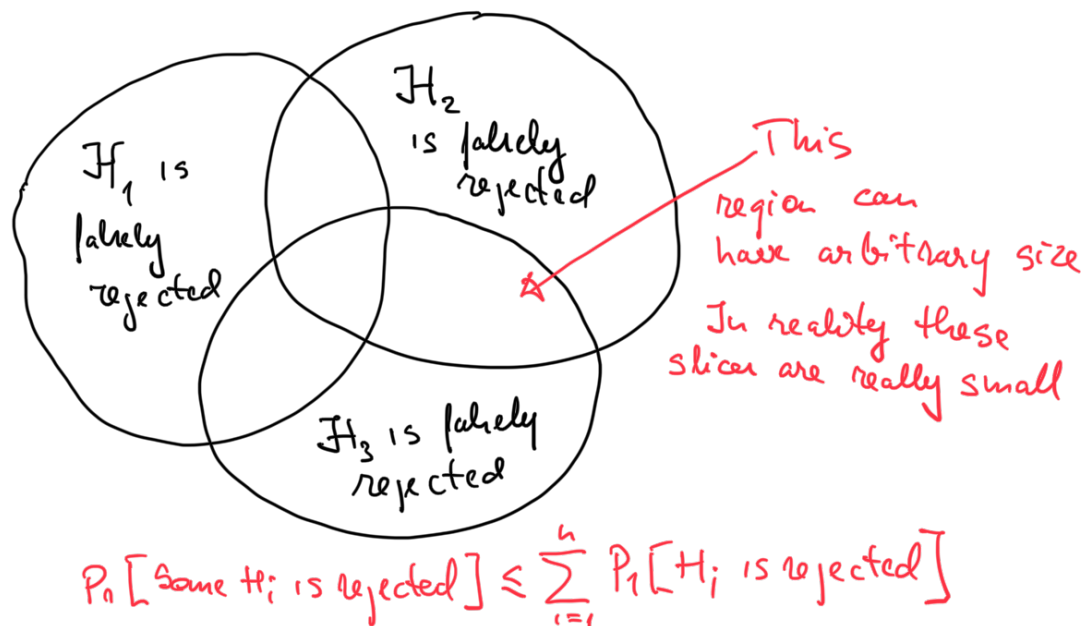 H₁ is
falsely
rejected
H₂
is falsely
rejected
H₃ is falsely
rejected
This
region can
have arbitrary size
In reality these
slices are really small
Pr[Some Hᵢ is rejected] ≤ ∑ⁿᵢ₌₁ Pr[Hᵢ is rejected]